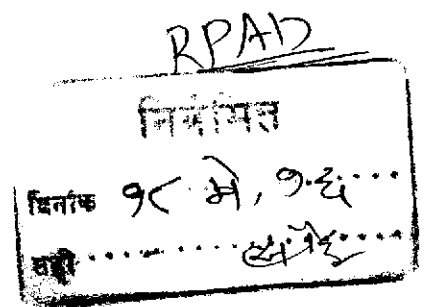 RPAD
निर्गमित
दिनांक १८ मे,
सही